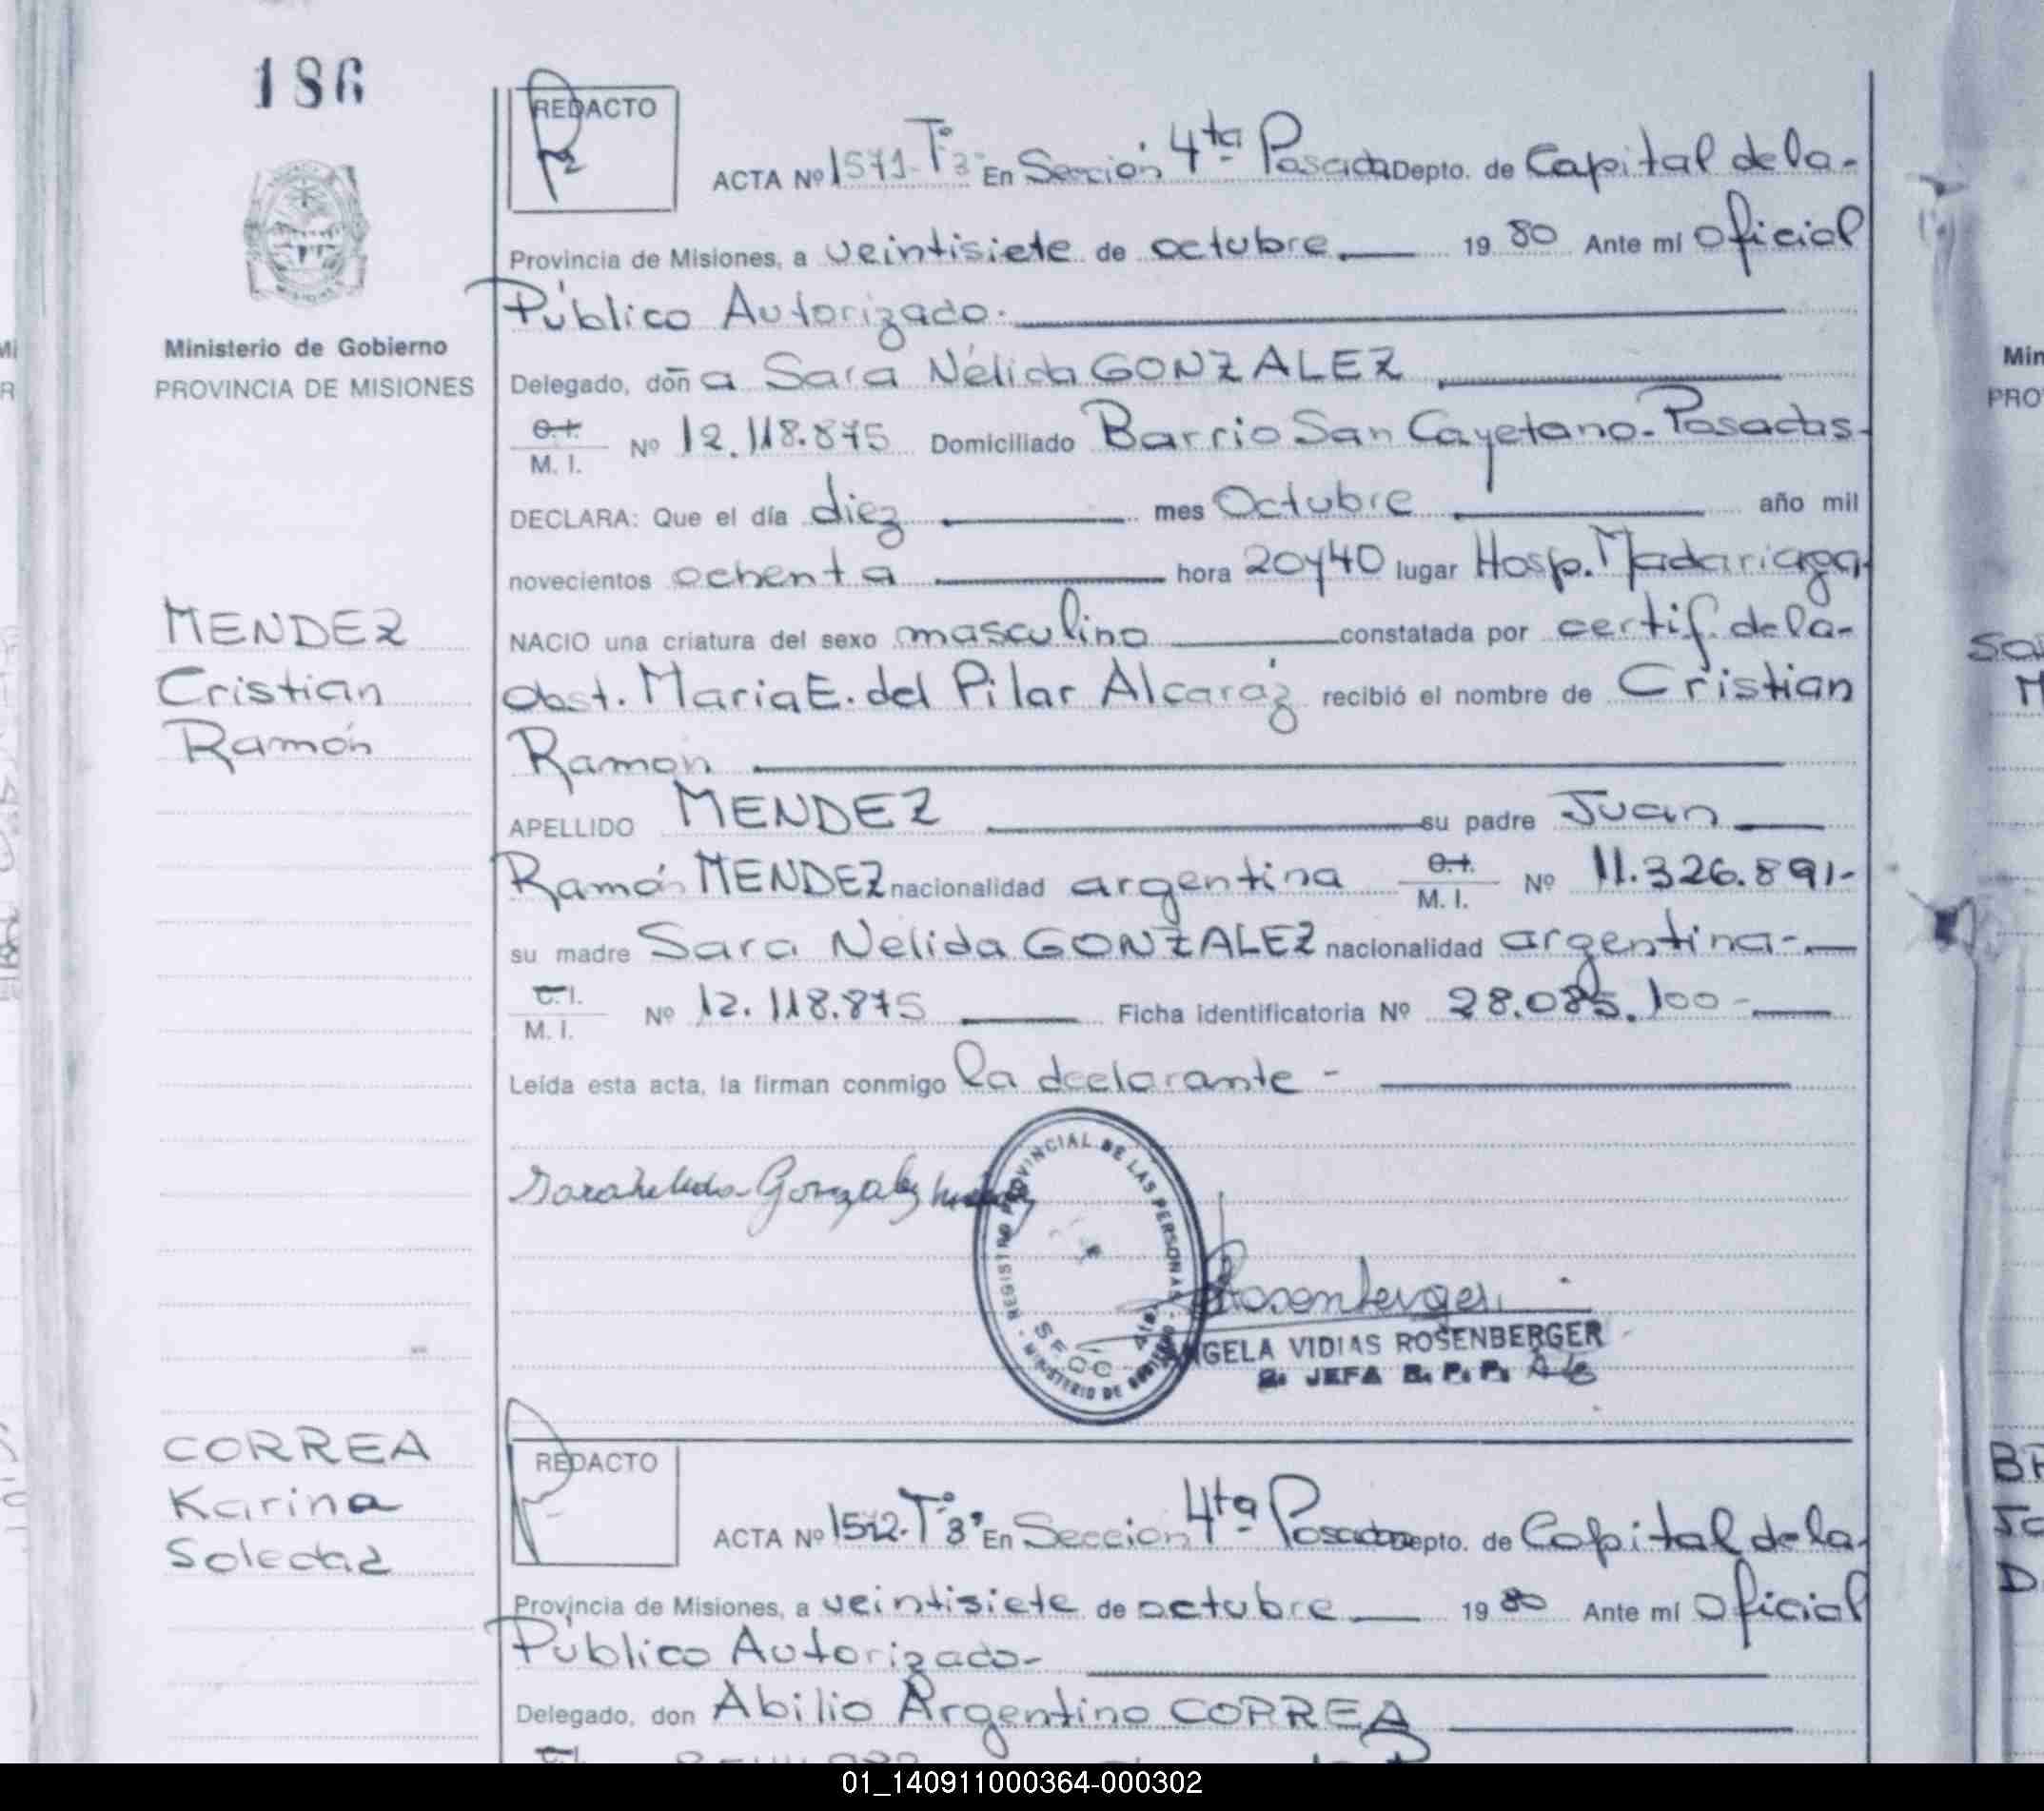 186
REDACTO
ACTA Nº 1571-Tº3º En Sección 4ta Posadas Depto. de Capital de la-
Provincia de Misiones, a veintisiete de octubre 1980 Ante mí Oficial
Público Autorizado.
Ministerio de Gobierno
PROVINCIA DE MISIONES
Delegado, doña Sara Nélida GONZALEZ
C.I. M. I. Nº 12.118.875 Domiciliado Barrio San Cayetano-Posadas-
DECLARA: Que el día diez mes Octubre año mil
novecientos ochenta hora 20y40 lugar Hosp. Madariaga-
NACIO una criatura del sexo masculino constatada por certif. de la-
Obst. Maria E. del Pilar Alcaráz recibió el nombre de Cristian
Ramon
MENDEZ
Cristian
Ramón
APELLIDO MENDEZ su padre Juan
Ramón MENDEZ nacionalidad argentina C.I. M. I. Nº 11.326.891-
su madre Sara Nelida GONZALEZ nacionalidad argentina-
C.I. M. I. Nº 12.118.875 Ficha identificatoria Nº 28.085.100-
Leída esta acta, la firman conmigo la declarante-
Sara Nelida Gonzalez
REGISTRO PROVINCIAL DE LAS PERSONAS - MINISTERIO DE GOBIERNO
SECC 4ta
Rosenberger
ANGELA VIDIAS ROSENBERGER
2. JEFA R. P. P.
CORREA
Karina
Soledad
REDACTO
ACTA Nº 1572-Tº3º En Seccion 4ta Posadas Depto. de Capital de la-
Provincia de Misiones, a veintisiete de octubre 1980 Ante mí Oficial
Público Autorizado-
Delegado, don Abilio Argentino CORREA
01_140911000364-000302